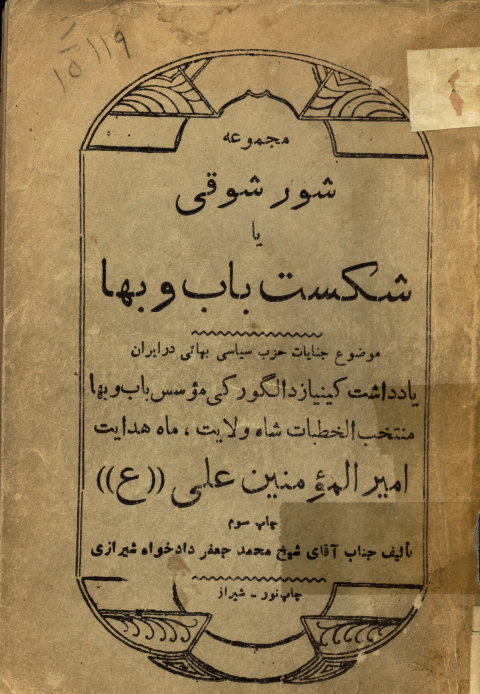 ۱۱۹
۱۵
مجموعه
شور شوقی
یا
شکست باب و بها
موضوع جنایات حزب سیاسی بهائی در ایران
یادداشت کینیاز دالگورکی مؤسس باب و بها
منتخب الخطبات شاه ولایت ، ماه هدایت
امیر المؤمنین علی ((ع))
چاپ سوم
تألیف جناب آقای شیخ محمد جعفر دادخواه شیرازی
چاپ نور - شیراز